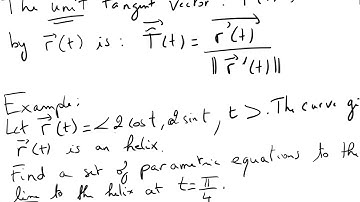 The unit tangent vector
by r⃗(t) is : T̂(t) = r⃗'(t) / ‖ r⃗'(t) ‖
Example:
Let r⃗(t) = < 2 cos t, 2 sin t, t >. The curve gi
r⃗(t) is an helix.
Find a set of parametric equations to the
line to the helix at t = π/4.